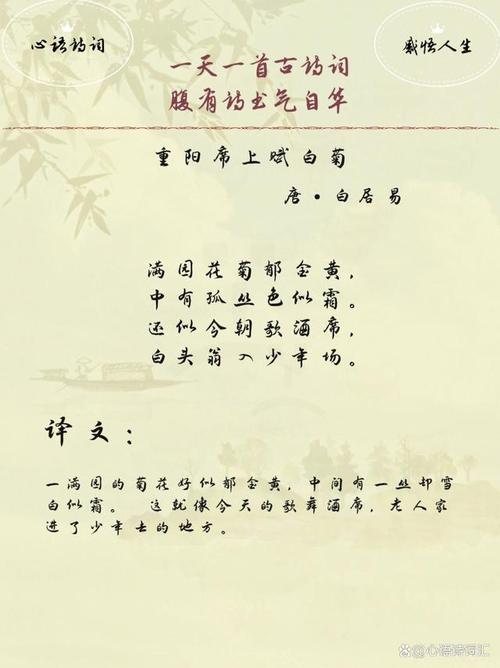 心语诗词
感悟人生
一天一首古诗词
腹有诗书气自华
重阳席上赋白菊
唐·白居易
满园花菊郁金黄，
中有孤丛色似霜。
还似今朝歌酒席，
白头翁入少年场。
译文：
一满园的菊花好似郁金黄，中间有一丛却雪
白似霜。 这就像今天的歌舞酒席，老人家
进了少年去的地方。
@心语诗词汇